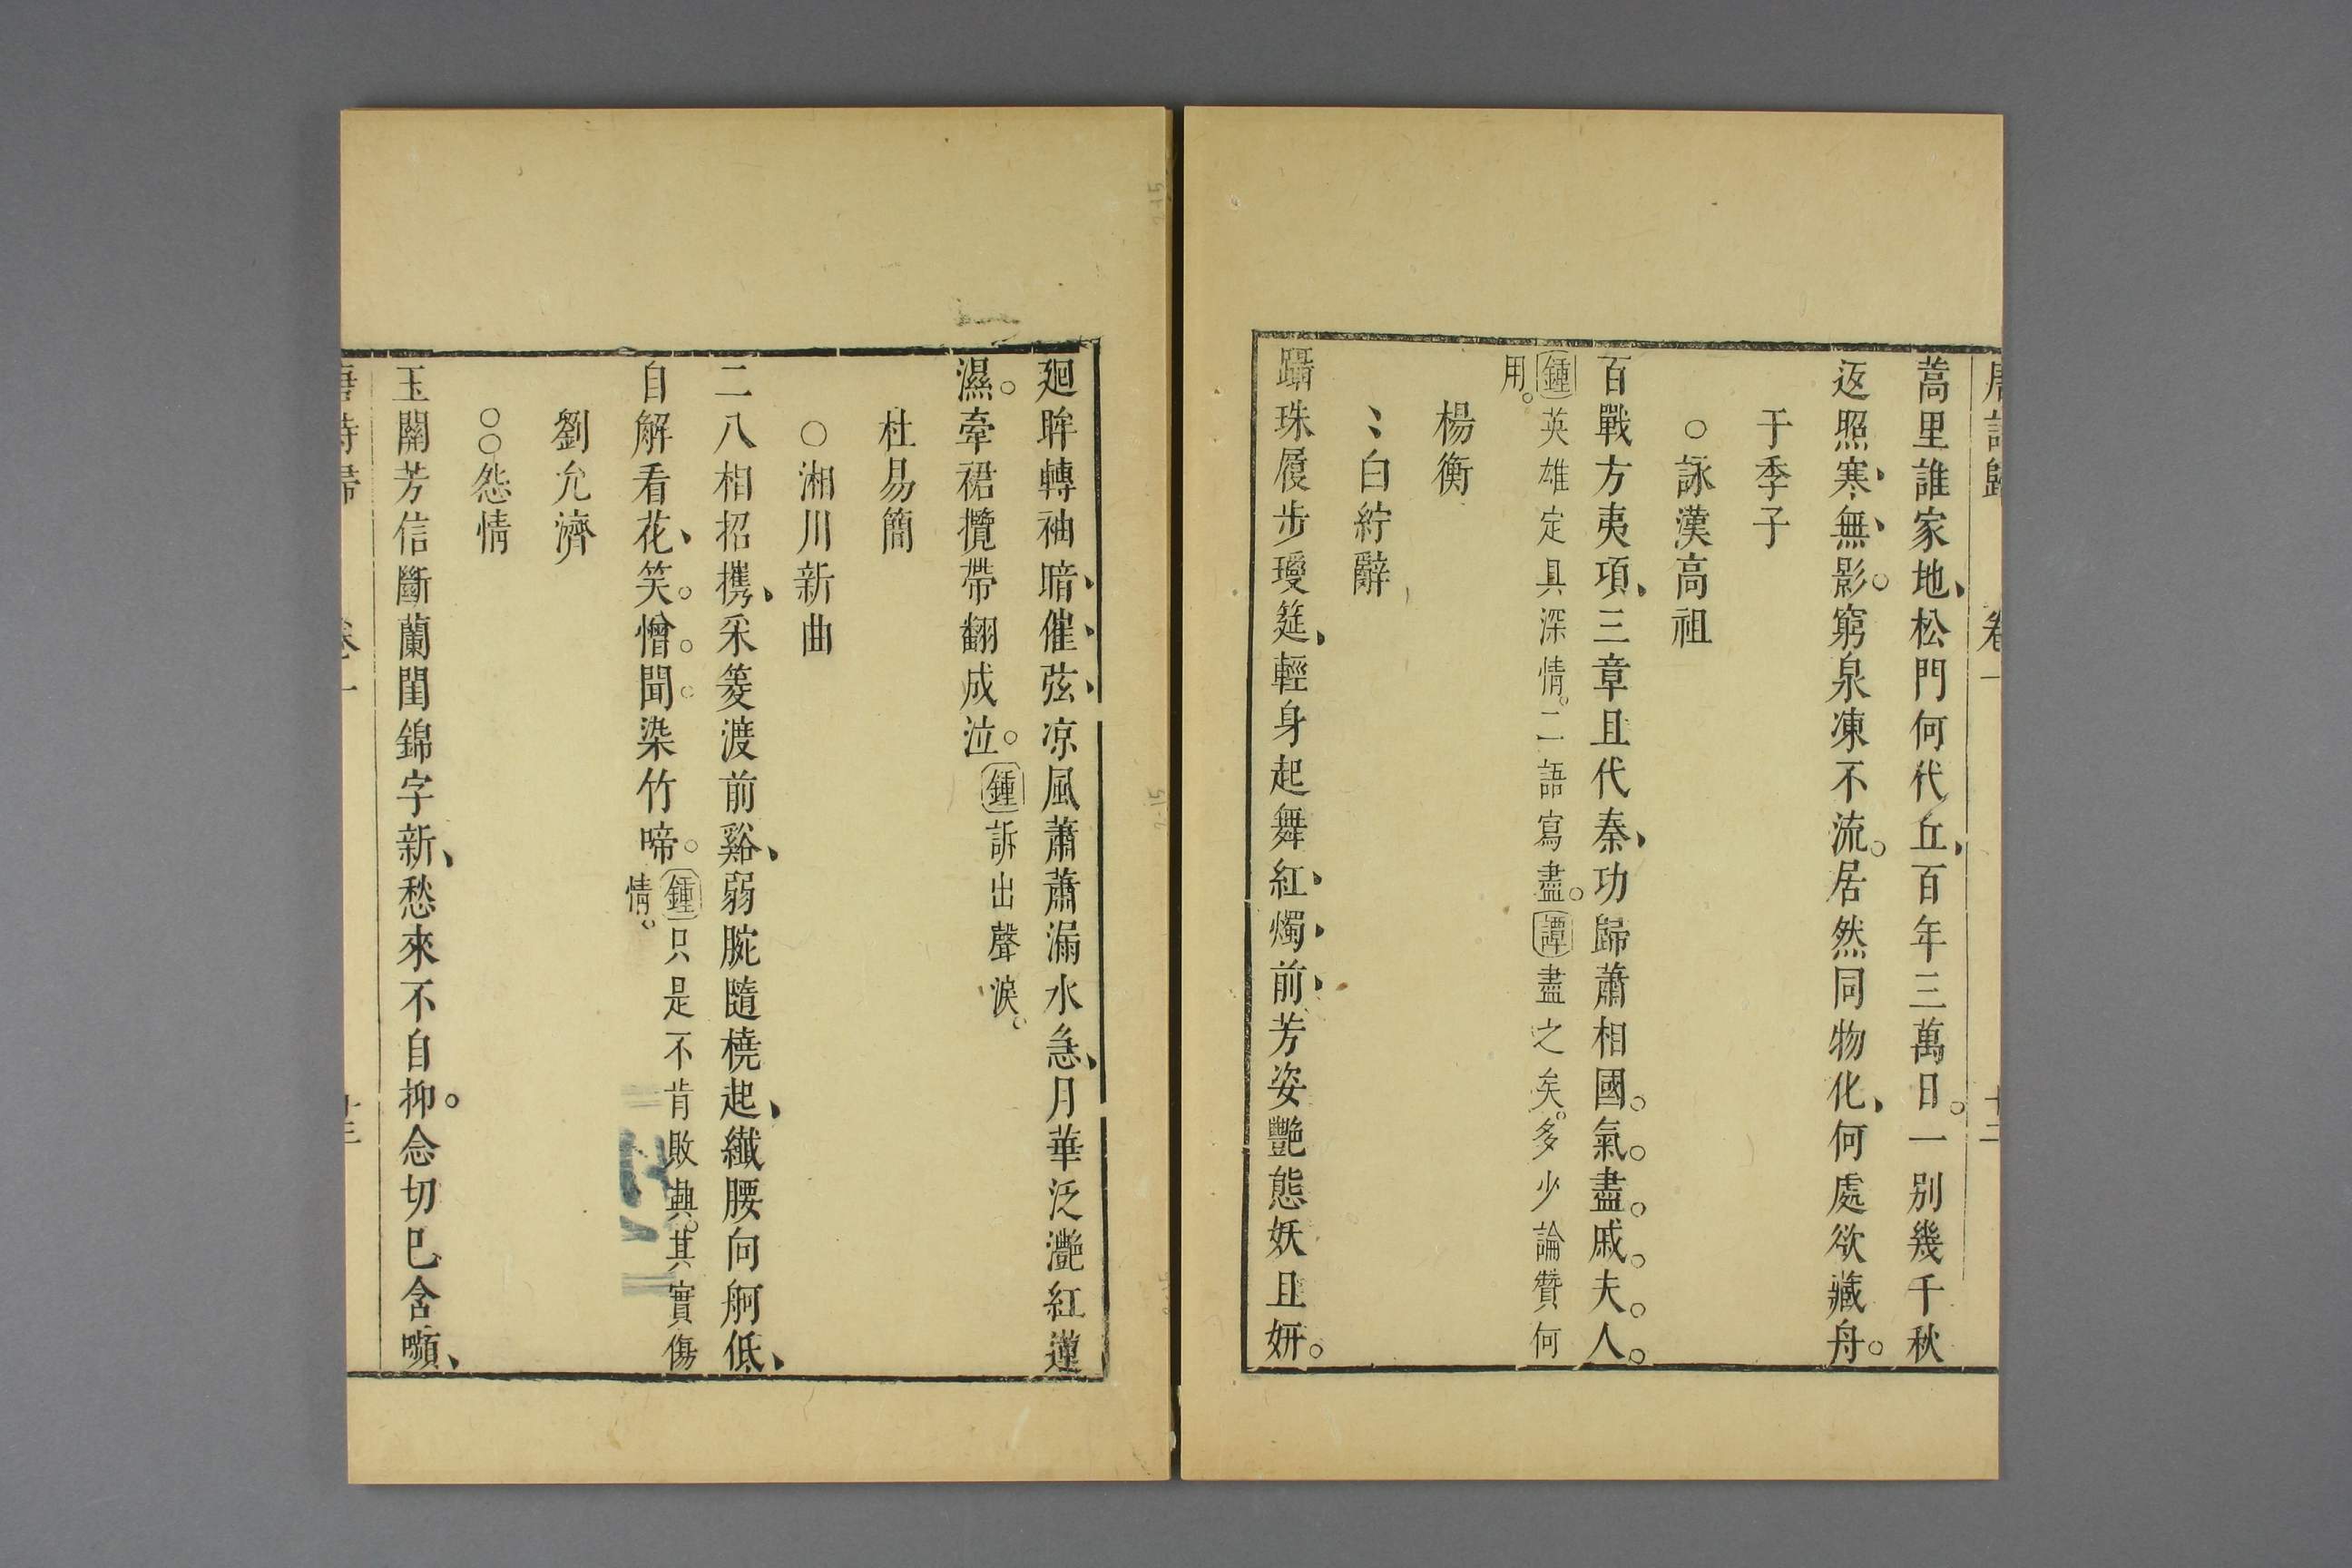 唐詩歸 卷一 十二
蒿里誰家地、松門何代丘、百年三萬日。一別幾千秋
返照寒、無、影。窮泉凍不流。居然同物化、何處欲藏舟。
于季子
○詠漢高祖
百戰方夷項、三章且代秦、功歸蕭相國。氣。盡。戚。夫。人。
鍾英雄定具深情。二語寫盡。譚盡之矣。多少論贊何
用。
楊衡
、白紵辭
躡珠履步瓊筵、輕身起舞紅、燭、前、芳姿艷態妖且妍。
廻眸轉袖暗、催、弦、凉風蕭蕭漏水急、月華泛灧紅蓮
濕。牽裙攬帶翻成泣。鍾訴出聲淚。
杜易簡
○湘川新曲
二八相招攜、采菱渡前谿、弱腕隨橈起、纖腰向舸低、
自解看花、笑。憎。聞。染竹啼。鍾只是不肯敗興。其實傷
情。
劉允濟
○○怨情
玉關芳信斷蘭閨錦字新、愁來不自抑。念切已含嚬、
唐詩歸 卷一 十三